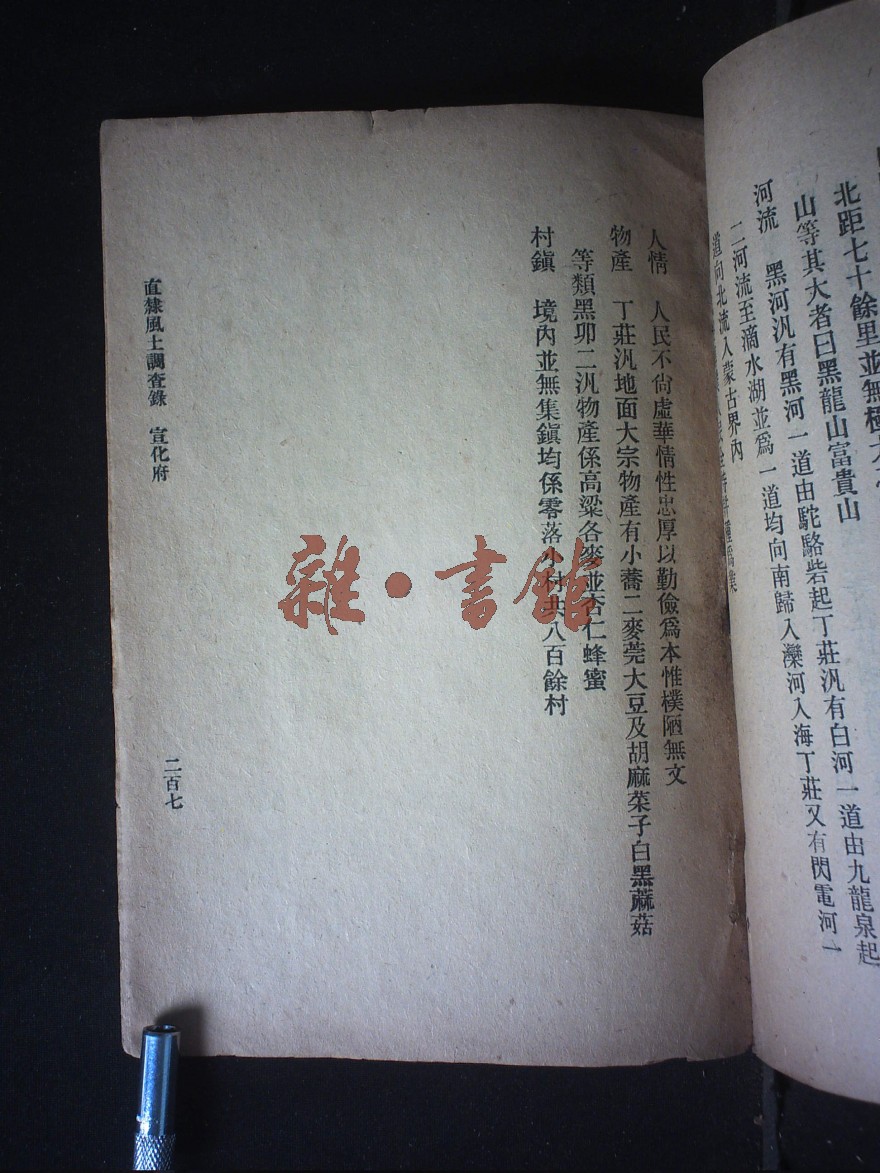 北距七十餘里並無極大
山等其大者曰黑龍山富貴山
河流　黑河汎有黑河一道由駝駱砦起丁莊汎有白河一道由九龍泉起
二河流至滴水湖並爲一道均向南歸入灤河入海丁莊又有閃電河一
道向北流入蒙古界內
人情　人民不尙虛華情性忠厚以勤儉爲本惟樸陋無文
物產　丁莊汎地面大宗物產有小蕎二麥莞大豆及胡麻菜子白黑蔴菇
等類黑卯二汎物產係高粱各麥並杏仁蜂蜜
村鎭　境內並無集鎭均係零落小村共八百餘村
直隸風土調查錄　宣化府
二百七
雜·書館